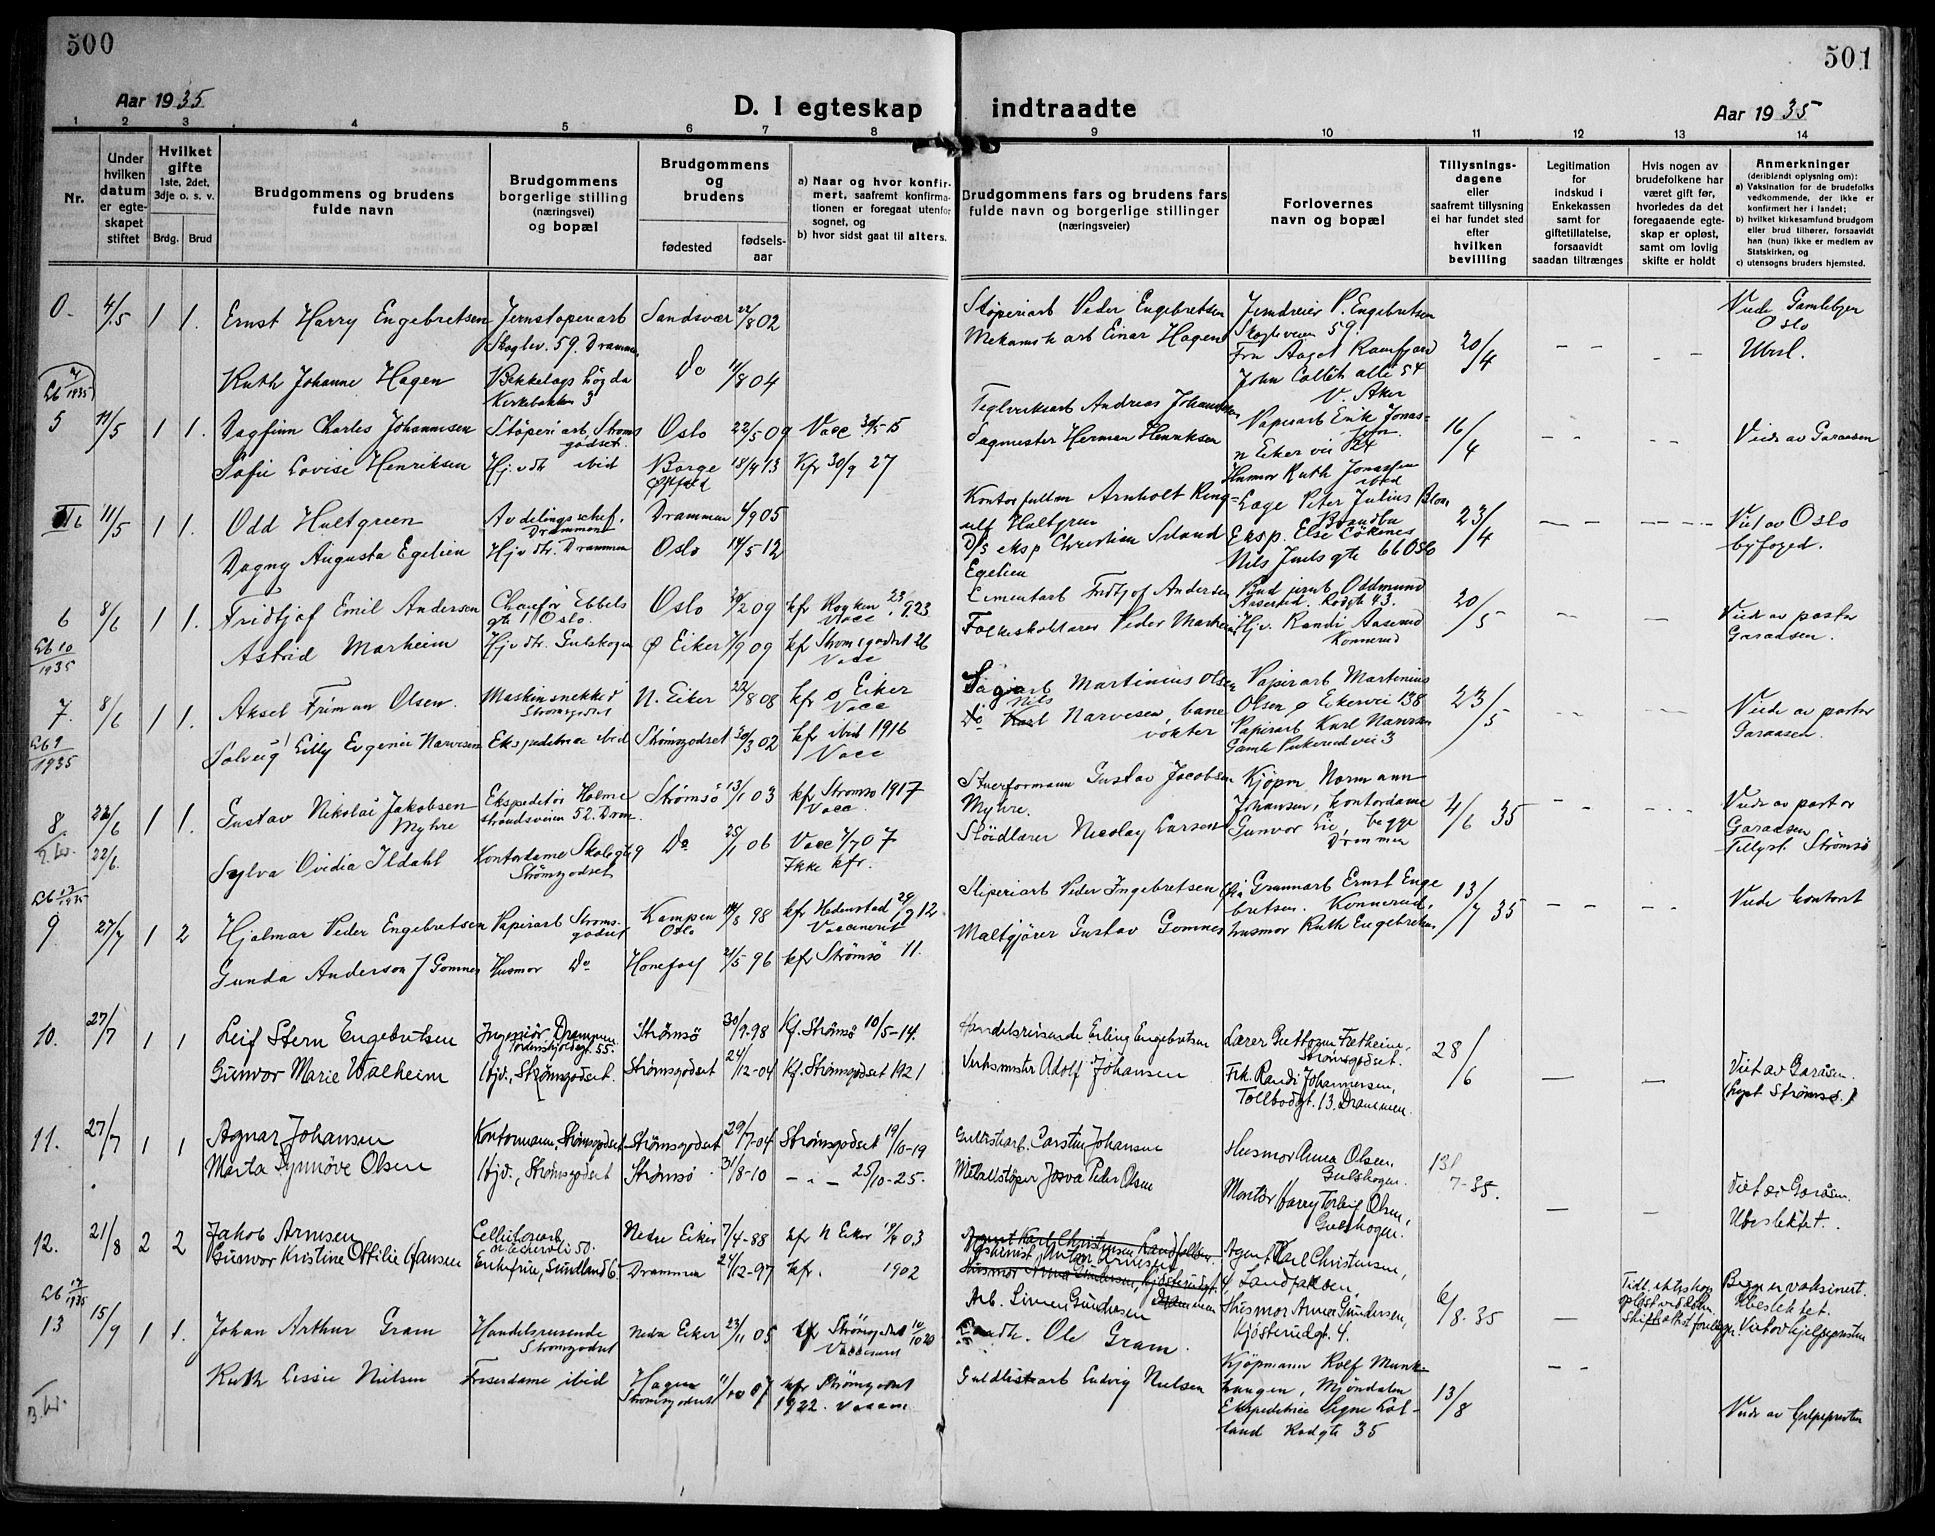 500
501
Aar 1935
D. I egteskap indtraadte
Aar 1935
1 2 3 4 5 6 7 8 9 10 11 12 13 14
Nr.
Under hvilken datum er egteskapet stiftet
Hvilket gifte 1ste, 2det, 3dje o. s. v.
Brdg. Brud
Brudgommens og brudens fulde navn
Brudgommens borgerlige stilling (næringsvei) og bopæl
Brudgommens og brudens
fødested
fødsels-aar
a) Naar og hvor konfirmert, saafremt konfirmationen er foregaat utenfor sognet, og
b) hvor sidst gaat til alters.
Brudgommens fars og brudens fars fulde navn og borgerlige stillinger (næringsveier)
Forlovernes navn og bopæl
Tillysningsdagene eller saafremt tillysning ei har fundet sted efter hvilken bevilling
Legitimation for indskud i Enkekassen samt for giftetillatelse, forsaavidt saadan tiltrænges
Hvis nogen av brudefolkene har været gift før, hvorledes da det foregaaende egteskap er opløst, samt om lovlig skifte er holdt
Anmerkninger (deriblendt oplysning om):
a) Vaksination for de brudefolks vedkommende, der ikke er konfirmert her i landet;
b) hvilket kirkesamfund brudgom eller brud tilhører, forsaavidt han (hun) ikke er medlem av Statskirken, og
c) utensogns bruders hjemsted.
0. 4/5 1 1. Ernst Harry Engebretsen Jernstøperiarb Skoglev. 59. Drammen Sandsvær 22/8 02 Støperiarb Peder Engebretsen Jerndreier P. Engebretsen Skogliveien 59. 20/4 Viede Gamlebyen Oslo
Ruth Johanne Hagen Bekkelagshøgda Kirkebakken 3 Do 11/8 04 Mekanisk arb Einar Hagen Fru Aagot Ramfjord John Collets alle 54 V. Aker Ubsl.
5 11/5 1 1. Dagfinn Charles Johannesen Støperiarb. Strømsgodset. Oslo 22/5 09 Vacc 30/5 15 Teglverksarb Andreas Johannesen Papirarb Erik Jonassen n Eiker vei 16/4 Viede av Garaasen
Sofie Lovise Henriksen Hjv dtr ibid Borge Østfold 18/4 13 Kfr 30/9 27 Sagmester Herman Henriksen Husmor Ruth Jonassen ibid
11/5 1 1. Odd Hultgreen Avdelingsschef. Drammen Drammen 4/9 05 Kontorfullm Arnholt Ringulf Hultgren Læge Peter Julius Blom Brandbu 23/4 Viet av Oslo byfoged.
Dagny Augusta Egelien Hjv dtr. Drammen Oslo 14/5 12 D/s eksp Christian Strand Egelien Eksp. Else Løkenes Nils Juels gte 66 Oslo
6 8/6 1 1. Fridtjof Emil Andersen Chaufør Ebbels gte 1 Oslo. Oslo 20/2 09 kfr Røyken 23/9 23 Vacc Cementarb Fridtjof Andersen Bud Oddmund Aaserud. Rodgt 43. 20/5 Viede av pastor Garaasen.
Lb 10/1935 Astrid Marheim Hjv dtr. Gulskogen Ø Eiker 7/9 09 kfr Strømsgodset 26 Vacc Folkeskolelærer Peder Marheim Hjv. Randi Aaserud Konnerud
7. 8/6 1 1. Aksel Friman Olsen. Maskinsnekker Strømsgodset N. Eiker 22/8 08 kfr ø Eiker Vacc Sagarb Martinius Olsen Papirarb Martinius Olsen ø Eikervei 138 23/5 Viede av pastor Garaasen.
Lb 9/1935 Solveig Lilly Evgenie Narvesen Ekspeditrice ibid Strømsgodset 30/3 02 kfr ibid 1916 Vacc Do Nils Narvesen, banevokter Papirarb Karl Narvesen Gamle Pukerud vei 3
8 22/6 1 1. Gustav Nikolai Jakobsen Myhre Ekspeditør Holmestrandsveien 52. Drm. Strømsø 13/1 03 kfr Strømsø 1917 Vacc. Stuerformann Gustav Jacobsen Myhre. Kjøpm Normann Johansen, Kontordame 4/6 35 Viede av pastor Garaasen Tillyst Strømsø
22/6. Sylva Ovidia Ildahl Kontordame Skolegt 9 Strømsgodset Do 25/1 06 Vacc 7/7 07 Ikke kfr. Sløidlærer Nicolay Larsen Gunvor Lie, begge Drammen
Lb 12/1935
9 27/7 1 2 Hjalmar Peder Engebretsen Papirarb Strømsgodset Kampen Oslo 14/8 98 kfr Hedenstad 29/9 12. Vaccinerit Sliperiarb Peder Ingebretsen Grannarb Ernst Engebretsen. Konnerud. 13/7 35 Viede kontoret
Gunda Anderson f Gomnes Husmor Do Hønefoss 21/5 96 kfr Strømsø 11. Maltgjører Gustav Gomnes husmor Ruth Engebretsen
10. 27/7 1 1 Leif Stern Engebretsen Ingeniør, Drammen Tordenskjoldsgt. 55. Strømsø 30/9-98 Kf. Strømsø 10/5-14. Handelsreisende Erling Engebretsen Lærer Guttorm Fretheim, Strømsgodset. 28/6
Gunvor Marie Walheim Hjv., Strømsgodset. Strømsgodset 24/12-04 Kf. Strømsgodset 1921 Verksmster Adolf Johansen Frk. Randi Johannessen, Tollbodgt. 13. Drammen. Viet av Garåsen. (Lyst Strømsø.)
11. 27/7 1 1 Agnar Johansen Kontormann, Strømsgodset Strømsgodset 29/7-04 Strømsgodset 19/10-19 Gullistarb. Carsten Johansen Husmor Anna Olsen, Gulskogen. 13/7-35.
Marta Synnøve Olsen Hjv., Strømsgodset Strømsø 31/8-10 – „ – 25/10-25. Metallstøper Josva Peder Olsen Montør Harry Torleif Olsen, Gulskogen. Viet av Garåsen. Ubeslektet.
12. 21/8 2 2 Jakob Arnesen Cellulosearb. 50. Nedre Eiker 7/4-88 kfr N Eiker 03 Maskinist Anton Arnesen Agent Karl Christensen, Landfalløen,
Gunvor Kristine Ottilie Hansen Enkefrue, Sundland 6. Drammen 24/12-97 kfr. 1902 Arb. Simen Gundersen Husmor Anna Gundersen, Kjøsterudgt. 4. 6/8. 35 Begge er vaksinert. Ubeslektet. Viet av hjelpepresten
Lb 17/1935
13 15/9 1 1. Johan Arthur Gram Handelsreisende Strømsgodset Nedre Eiker 23/11 05 kfr Strømsgodset 10/10 20 Vaccineret Ole Gram. Kjøpmann Rolf Munkhaugen, Mjøndalen 13/8
Ruth Lissie Nielsen Friserdame ibid Hagen Strømsgodset 07 kfr Strømsgodset 1922. Vaccin Guldlistarb Ludvig Nielsen Ekspeditrice Signe Lolland Rodgte 35 Viede av hjelpepresten